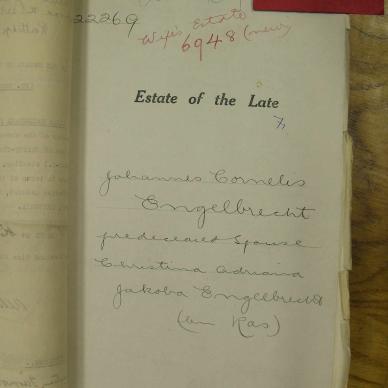 22269
Wife's Estate
6948 (new)
Estate of the Late
Johannes Cornelis
Engelbrecht
predeceased Spouse
Christina Adriana
Jakoba Engelbrecht
(born Ras)